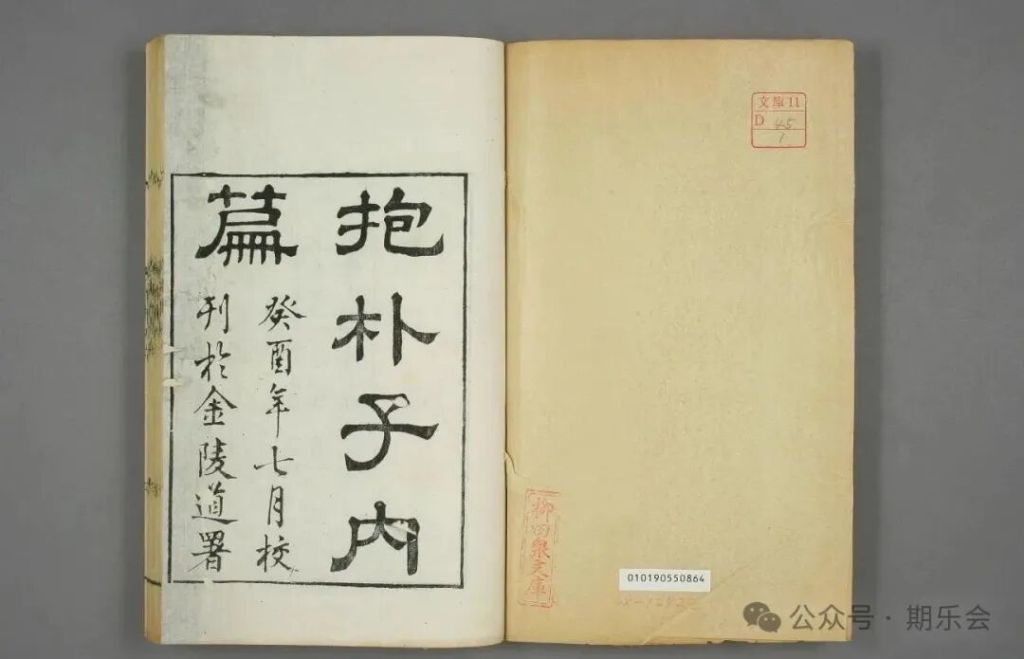 抱朴子內
篇
癸酉年七月校
刊於金陵道署
文庫11
D 45
1
柳田泉文庫
010190550864
公众号·期乐会